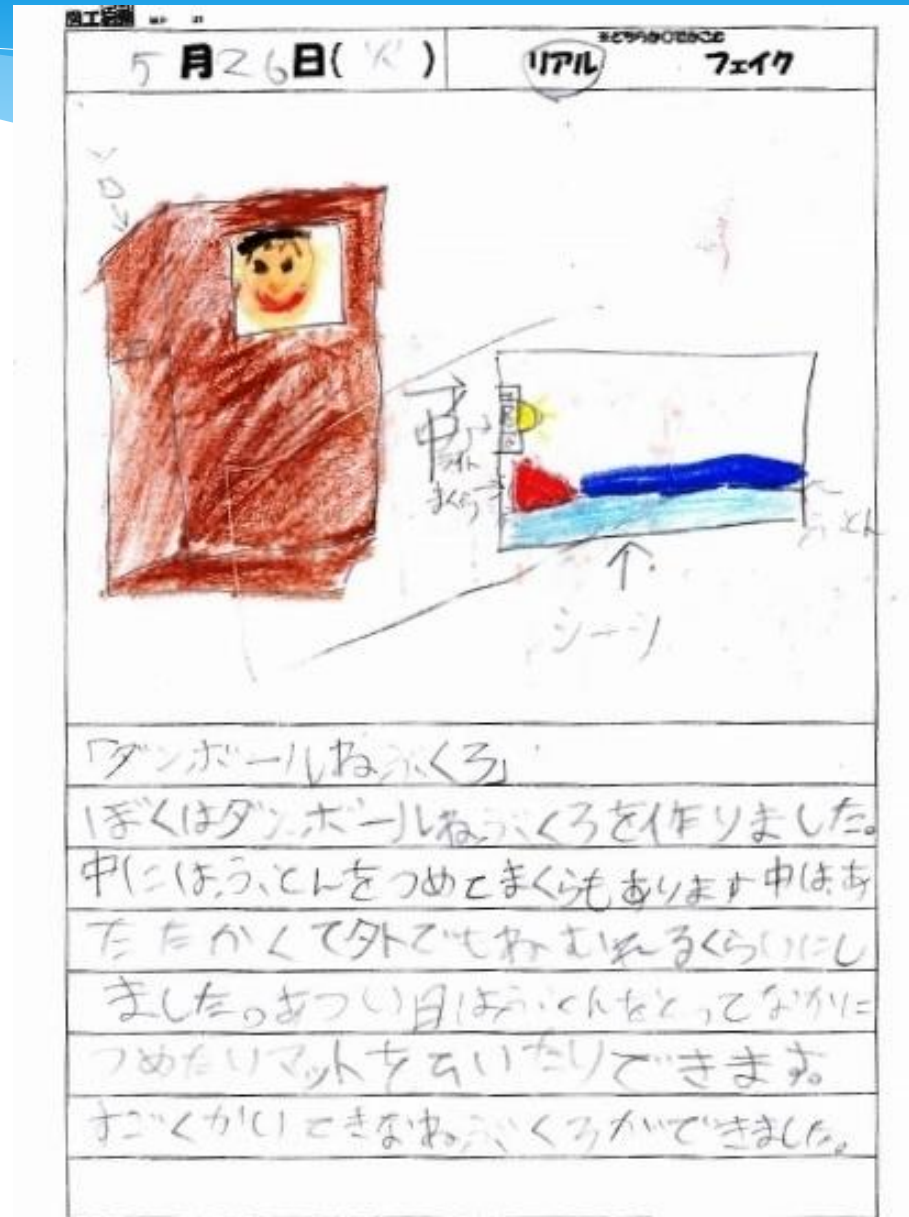 図工絵日記
5月26日(火)
※どちらか○でかこむ
リアル フェイク
中
ライト
まくら→
ふとん
シーツ
「ダンボールねぶくろ」
ぼくはダンボールねぶくろを作りました。
中にはふとんをつめてまくらもあります中はあ
たたかくて外でもねむれるくらいにし
ました。あつい日はふとんをとってなかに
つめたいマットをしいたりできます。
すごくかいてきなねぶくろができました。